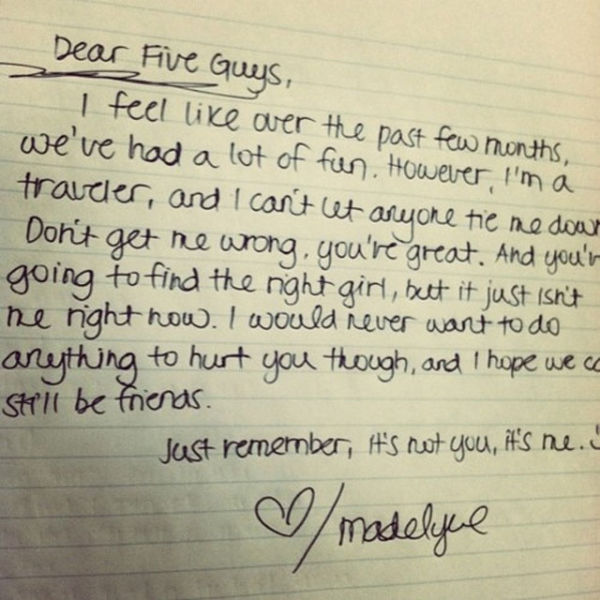 Dear Five Guys,
I feel like over the past few months,
we've had a lot of fun. However, I'm a
traveler, and I can't let anyone tie me down
Don't get me wrong, you're great. And you'r
going to find the right girl, but it just isn't
me right now. I would never want to do
anything to hurt you though, and I hope we ca
still be friends.
Just remember, it's not you, it's me. :
♡/madelyne